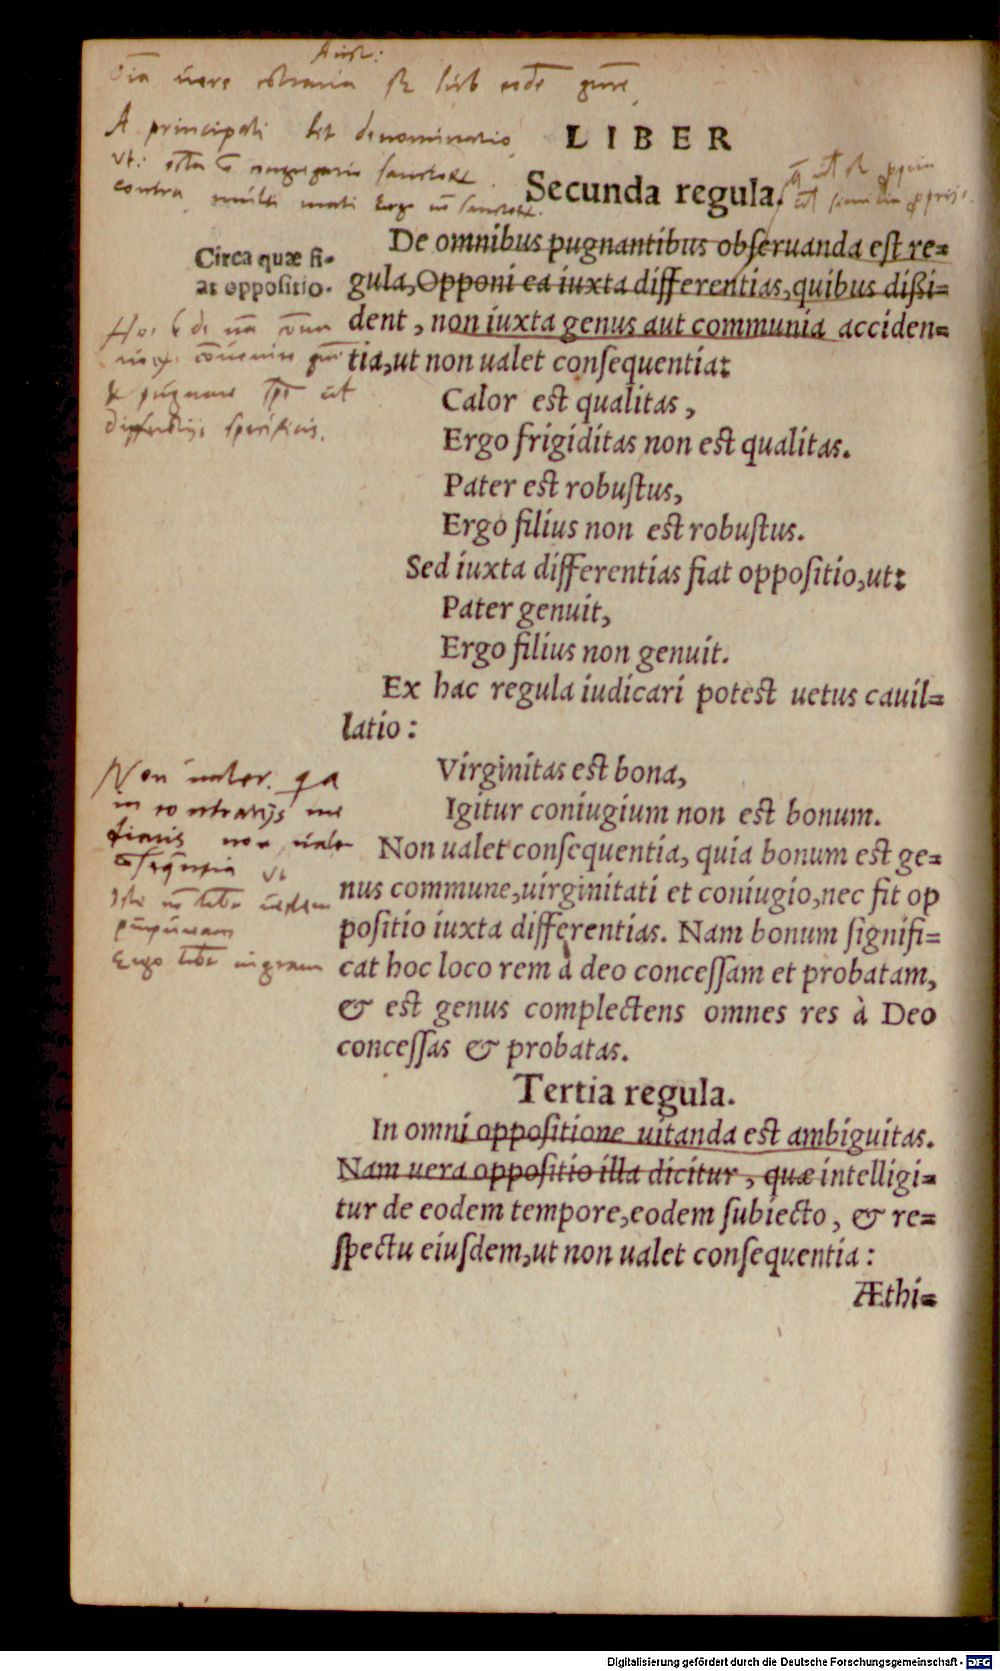 Arist:
A principali fit denominatio
LIBER
contra multi mali Ergo
Secunda regula.
De omnibus pugnantibus obſeruanda eſt re=
Circa quæ fi-
at oppoſitio.
gula, Opponi ea iuxta differentias, quibus dißi=
dent, non iuxta genus aut communia acciden=
tia, ut non ualet conſequentia:
& pugnare
specificis.
Calor eſt qualitas,
Ergo frigiditas non eſt qualitas.
Pater eſt robuſtus,
Ergo filius non eſt robuſtus.
Sed iuxta differentias fiat oppoſitio, ut:
Pater genuit,
Ergo filius non genuit.
Ex hac regula iudicari poteſt uetus cauil=
latio:
Virginitas eſt bona,
Igitur coniugium non eſt bonum.
Non ualet conſequentia, quia bonum eſt ge=
nus commune, uirginitati et coniugio, nec fit op
poſitio iuxta differentias. Nam bonum ſignifi=
cat hoc loco rem à deo conceſſam et probatam,
& eſt genus complectens omnes res à Deo
conceſſas & probatas.
Non ualet. qa
in contrarijs me
diatis non uale
vt
Ergo nigram
Tertia regula.
In omni oppoſitione uitanda eſt ambiguitas.
Nam uera oppoſitio illa dicitur, quæ intelligi=
tur de eodem tempore, eodem ſubiecto, & re=
ſpectu eiuſdem, ut non ualet conſequentia:
Æthi=
Digitalisierung gefördert durch die Deutsche Forschungsgemeinschaft - DFG